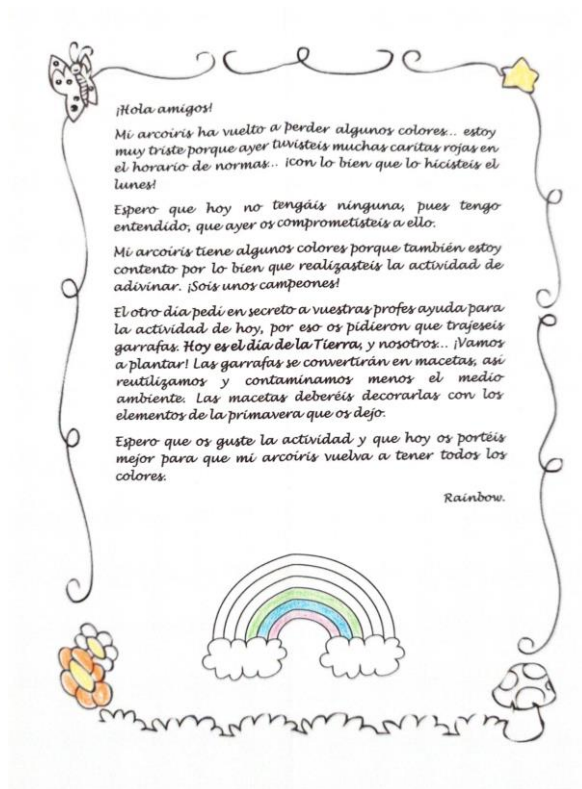 ¡Hola amigos!
Mi arcoíris ha vuelto a perder algunos colores... estoy
muy triste porque ayer tuvisteis muchas caritas rojas en
el horario de normas... ¡con lo bien que lo hicisteis el
lunes!
Espero que hoy no tengáis ninguna, pues tengo
entendido, que ayer os comprometisteis a ello.
Mi arcoíris tiene algunos colores porque también estoy
contento por lo bien que realizasteis la actividad de
adivinar. ¡Sois unos campeones!
El otro día pedí en secreto a vuestras profes ayuda para
la actividad de hoy, por eso os pidieron que trajeseis
garrafas. Hoy es el día de la Tierra, y nosotros... ¡Vamos
a plantar! Las garrafas se convertirán en macetas, así
reutilizamos y contaminamos menos el medio
ambiente. Las macetas deberéis decorarlas con los
elementos de la primavera que os dejo.
Espero que os guste la actividad y que hoy os portéis
mejor para que mi arcoíris vuelva a tener todos los
colores.
Rainbow.